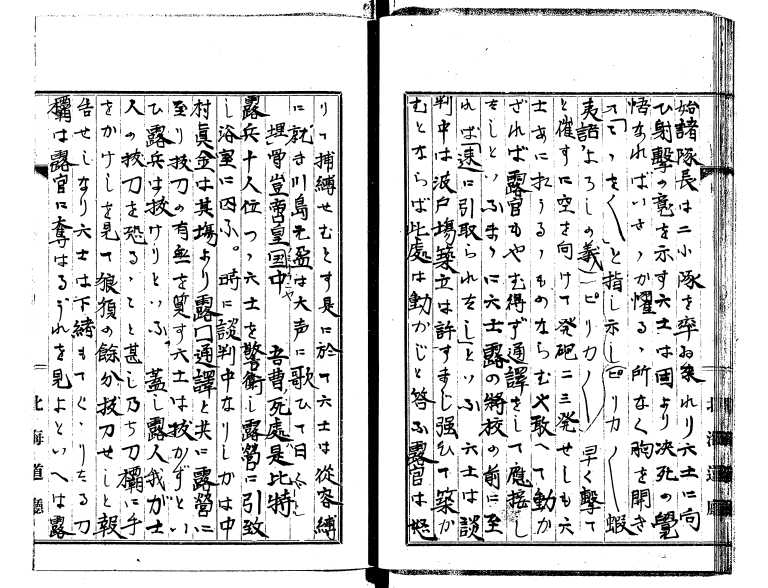 始諸隊長は二小隊を率ゐ来れり六士に向
ひ射撃の意を示す六士は固より決死の覺
悟なればいさゝか懼るゝ所なく胸を開き
と指し示し
夷語よろしの義 ピリカ 早く撃て
と催すに空を向けて発砲二三発せしも六
士あに
ざれば露官もやむ得ず通譯をして應接し
をしといふまゝに六士露の將校の前に至
れば速に引取られをしといふ六士は談
判中は波戸場築立は許すまじ強ひて築か
むとならば此處は動かじと答ふ露官は怒
りて捕縛せむとす是に於て六士は従容縛
に就き川島元盈は大声に歌ひて曰
埋骨豈啻皇国中 吾曹死處是比特
露兵十人位つゝ六士を警衛し露營に引致
し浴室に囚ふ。時に談判中なりしかは中
村眞金は其場より露国通譯と共に露營に
至り抜刀の有無を質す六士は抜かずとい
ひ露兵は抜けりといふ。蓋し露人我が士
人の抜刀を恐るゝこと甚し乃ち刀欛に手
をかけしを見て狼狽の餘分抜刀せしと報
告せしなり六士は下緒もてくゝりたる刀
欛は露官に奪はるうれを見よといへは露
北海道廳
北海道廳